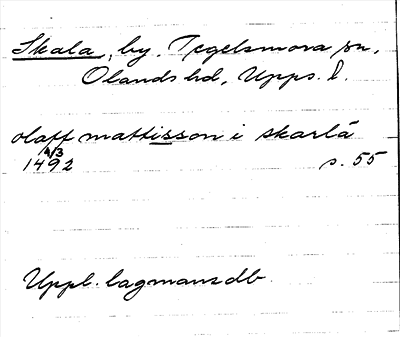 Skala, by. Tegelsmora sn,
Olands hd, Upps. l.
olaff mattisson i skarlá
4/3
1492 s. 55
Uppl. lagmansdb